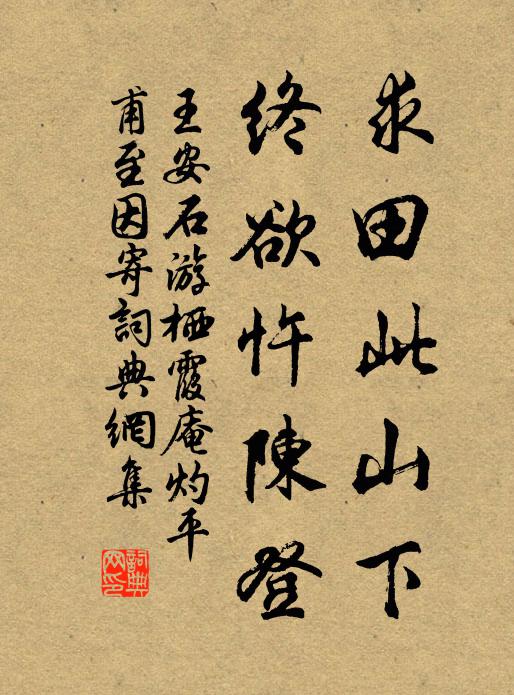 求田此山下
終欲忤陳登
王安石游栖霞庵灼平
甫至因寄詞典網集
詞典网印